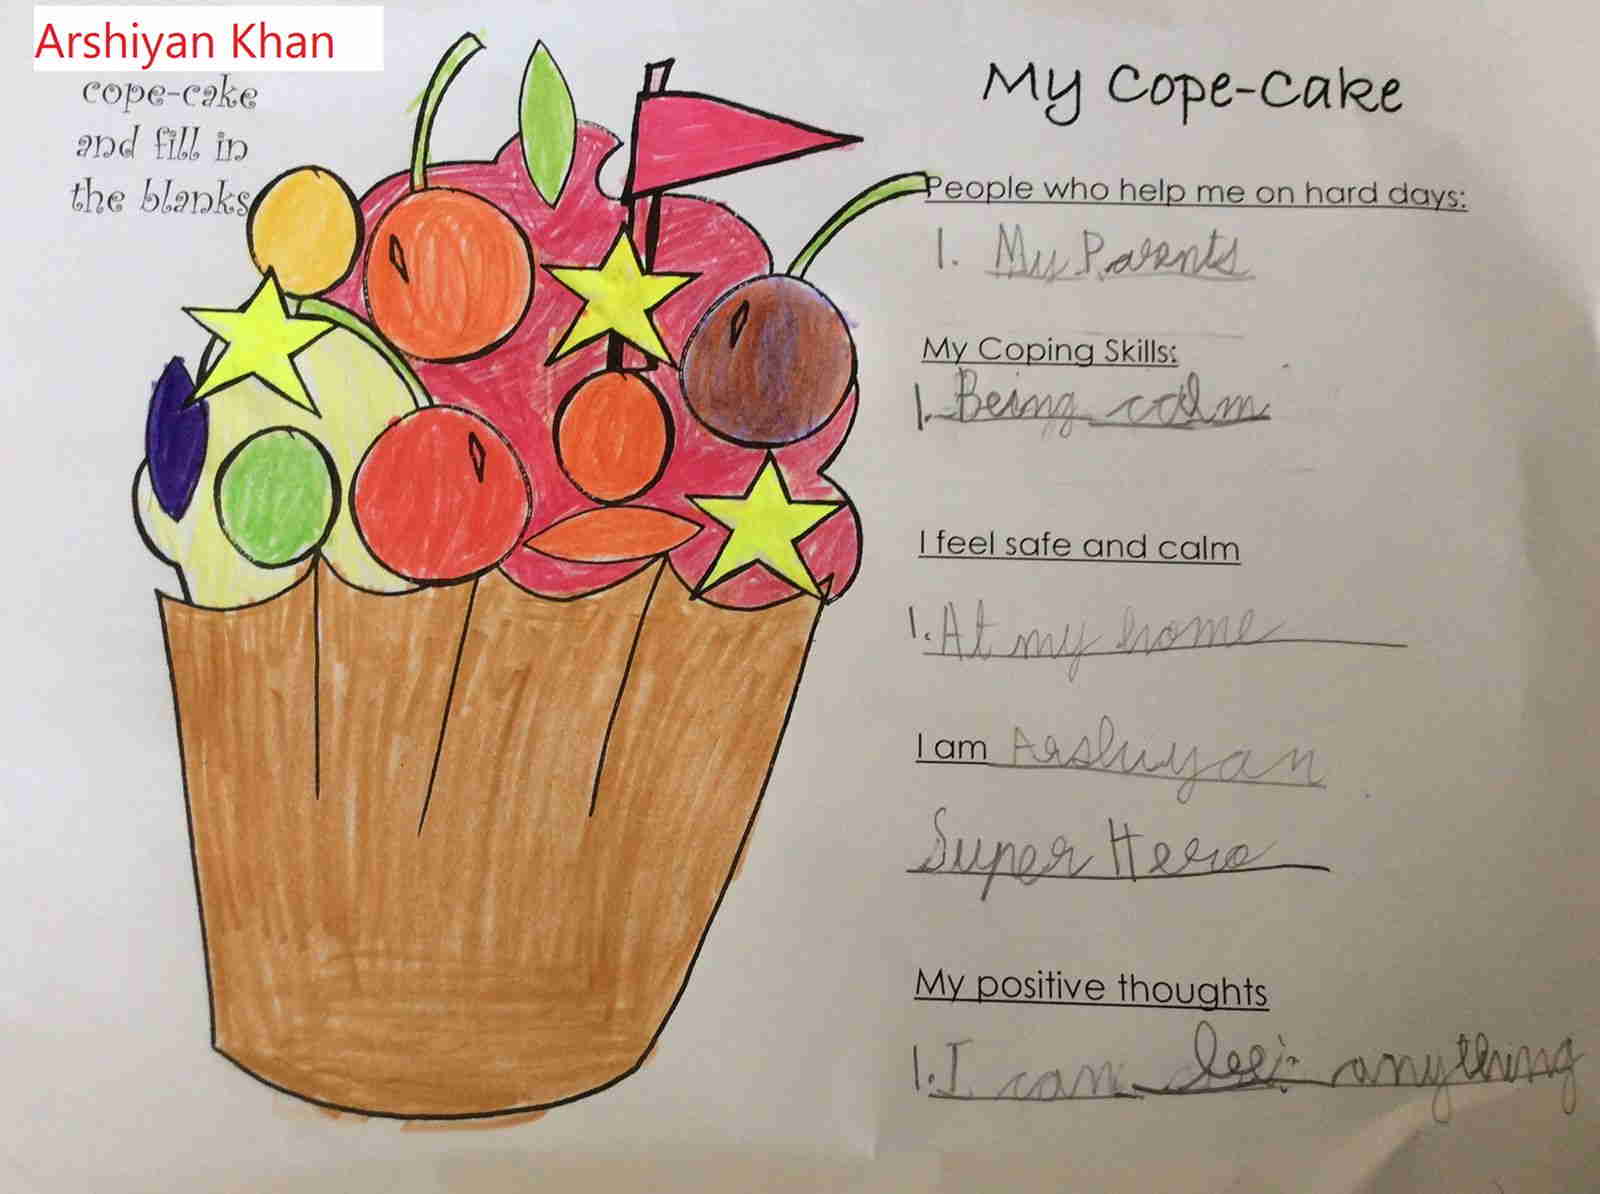 Arshiyan Khan
cope-cake
and fill in
the blanks
My Cope-Cake
People who help me on hard days:
1. My Parents
My Coping Skills:
1. Being calm
I feel safe and calm
1. At my home
I am Arshiyan
Super Hero
My positive thoughts
1. I can anything